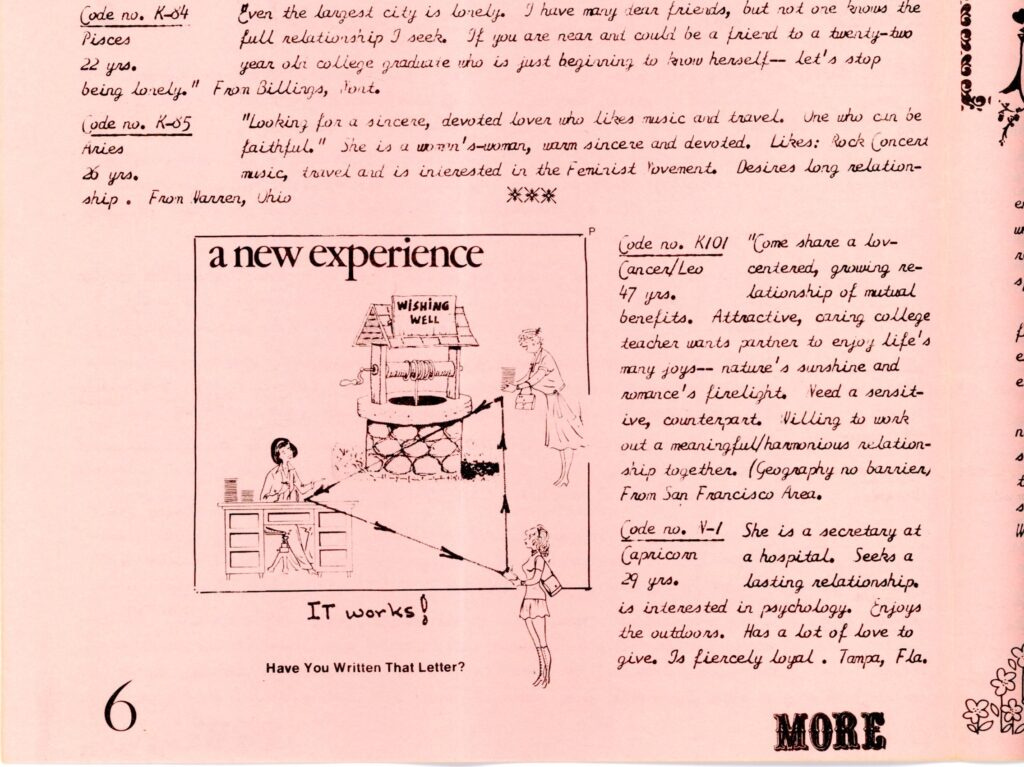 Code no. K-84 Even the largest city is lonely. I have many dear friends, but not one knows the
Pisces full relationship I seek. If you are near and could be a friend to a twenty-two
22 yrs. year old college graduate who is just beginning to know herself-- let's stop
being lonely." From Billings, Mont.
Code no. K-85 "Looking for a sincere, devoted lover who likes music and travel. One who can be
Aries faithful." She is a women's-woman, warm sincere and devoted. Likes: Rock Concert
26 yrs. music, travel and is interested in the Feminist Movement. Desires long relation-
ship. From Warren, Ohio
***
P
a new experience
WISHING
WELL
IT works!
Have You Written That Letter?
Code no. K101 "Come share a lov-
Cancer/Leo centered, growing re-
47 yrs. lationship of mutual
benefits. Attractive, caring college
teacher wants partner to enjoy life's
many joys-- nature's sunshine and
romance's firelight. Need a sensit-
ive, counterpart. Willing to work
out a meaningful/harmonious relation-
ship together. (Geography no barrier,
From San Francisco Area.
Code no. V-1 She is a secretary at
Capricorn a hospital. Seeks a
29 yrs. lasting relationship.
is interested in psychology. Enjoys
the outdoors. Has a lot of love to
give. Is fiercely loyal. Tampa, Fla.
6
MORE